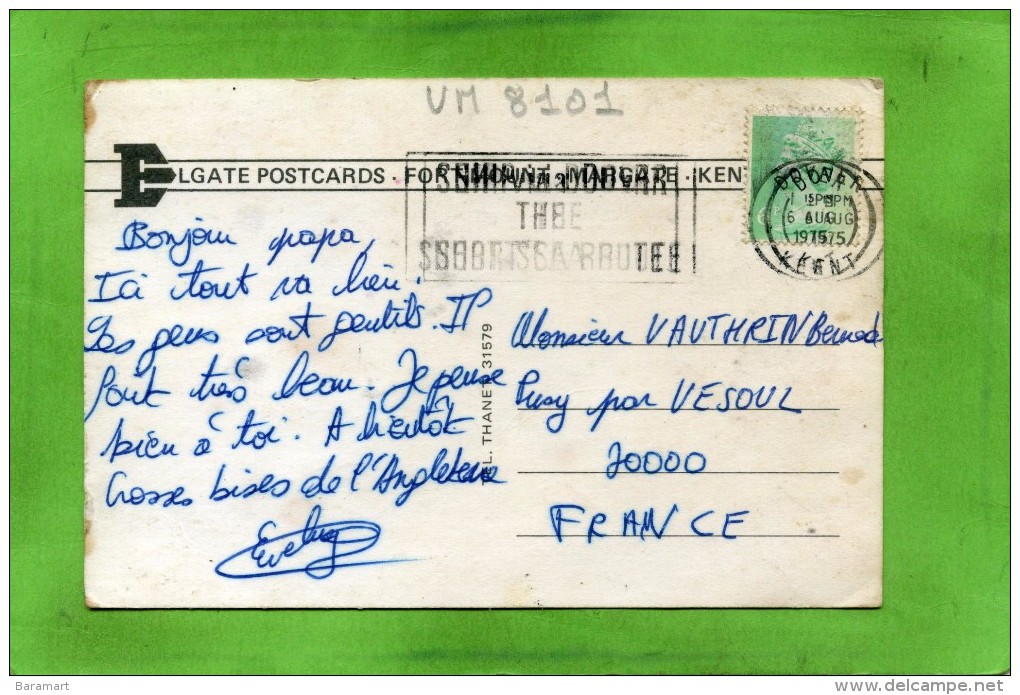 VM 8101
ELGATE POSTCARDS · FORT MOUNT · MARGATE · KENT
SHIP VIA DOVER
THE
SHORT SEA ROUTE
DOVER
PM
6 AUG
1975
KENT
Bonjour papa,
Ici tout va bien.
Les gens sont gentils. Il
font très beau. Je pense
bien à toi. A bientôt
Grosses bises de l'Angleterre
Evelyne
TEL. THANET 31579
Monsieur VAUTHRIN Bernard
Pusy par VESOUL
70000
FRANCE
Baramart
www.delcampe.net